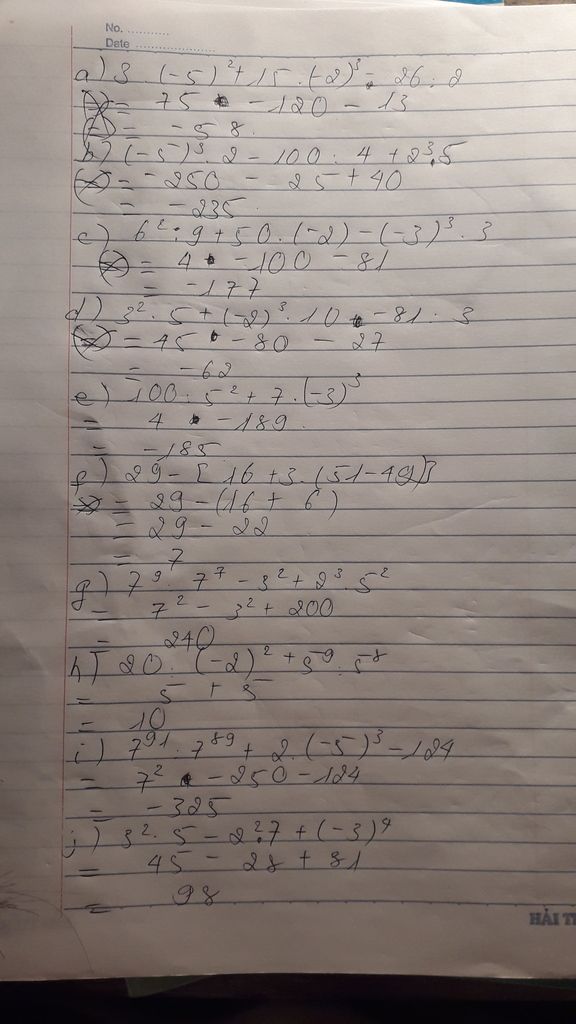 No. ............
Date ......................
a) 3 . (-5)² + 15 . (-2)³ - 26 : 2
= 75 - 120 - 13
= -58.
b) (-5)³ . 2 - 100 : 4 + 2³.5
= -250 - 25 + 40
= -235.
c) 6² : 9 + 50 . (-2) - (-3)³ . 3
= 4 - 100 - 81
= -177
d) 3² . 5 + (-2)³ . 10 - 81 : 3
= 45 - 80 - 27
= -62
e) 100 : 5² + 7 . (-3)³
= 4 - 189.
= -185
f) 29 - [16 + 3 . (51 - 49)]
= 29 - (16 + 6)
= 29 - 22
= 7
g) 7⁹ : 7⁷ - 3² + 2³ . 5²
= 7² - 3² + 200
= 240
h) 20 : (-2)² + 5⁹ : 5⁸
= 5 + 5
= 10
i) 7⁹¹ : 7⁸⁹ + 2 . (-5)³ - 124
= 7² - 250 - 124
= -325
j) 3² . 5 - 2².7 + (-3)⁴
= 45 - 28 + 81
= 98